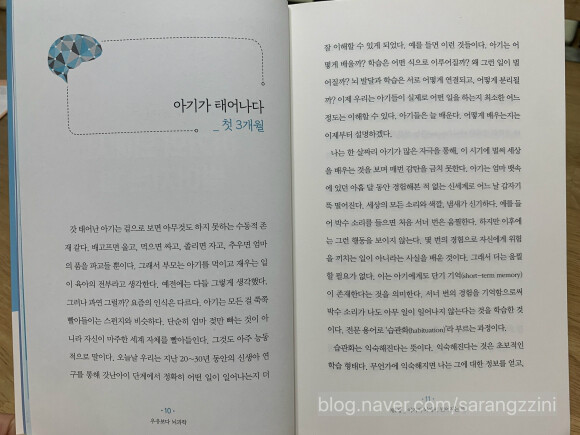 아기가 태어나다
_ 첫 3개월
갓 태어난 아기는 겉으로 보면 아무것도 하지 못하는 수동적 존
재 같다. 배고프면 울고, 먹으면 싸고, 졸리면 자고, 추우면 엄마
의 품을 파고들 뿐이다. 그래서 부모는 아기를 먹이고 재우는 일
이 육아의 전부라고 생각한다. 예전에는 다들 그렇게 생각했다.
그러나 과연 그럴까? 요즘의 인식은 다르다. 아기는 모든 걸 쭉쭉
빨아들이는 스펀지와 비슷하다. 단순히 엄마 젖만 빠는 것이 아
니라 자신이 마주한 세계 자체를 빨아들인다. 그것도 아주 능동
적으로 말이다. 오늘날 우리는 지난 20~30년 동안의 신생아 연
구를 통해 갓난아이 단계에서 정확히 어떤 일이 일어나는지 더
10
우웅보다 뇌과학
잘 이해할 수 있게 되었다. 예를 들면 이런 것들이다. 아기는 어
떻게 배울까? 학습은 어떤 식으로 이루어질까? 왜 그런 일이 벌
어질까? 뇌 발달과 학습은 서로 어떻게 연결되고, 어떻게 분리될
까? 이제 우리는 아기들이 실제로 어떤 일을 하는지 최소한 어느
정도는 이해할 수 있다. 아기들은 늘 배운다. 어떻게 배우는지는
이제부터 설명하겠다.
나는 한 살짜리 아기가 많은 자극을 통해, 이 시기에 벌써 세상
을 배우는 것을 보며 매번 감탄을 금치 못한다. 아기는 엄마 뱃속
에 있던 아홉 달 동안 경험해본 적 없는 신세계로 어느 날 갑자기
뚝 떨어진다. 세상의 모든 소리와 색깔, 냄새가 신기하다. 예를 들
어 박수 소리를 들으면 처음 서너 번은 움찔한다. 하지만 이후에
는 그런 행동을 보이지 않는다. 몇 번의 경험으로 자신에게 위험
을 끼치는 일이 아니라는 사실을 배운 것이다. 그래서 더는 움찔
할 필요가 없다. 이는 아기에게도 단기 기억(short-term memory)
이 존재한다는 것을 의미한다. 서너 번의 경험을 기억함으로써
박수 소리가 나도 아무 일이 일어나지 않는다는 것을 학습한 것
이다. 전문 용어로 '습관화(habituation)'라 부르는 과정이다.
습관화는 익숙해진다는 뜻이다. 익숙해진다는 것은 초보적인
학습 형태다. 무언가에 익숙해지면 나는 그에 대한 정보를 얻고,
11
blog.naver.com/sarangzzini